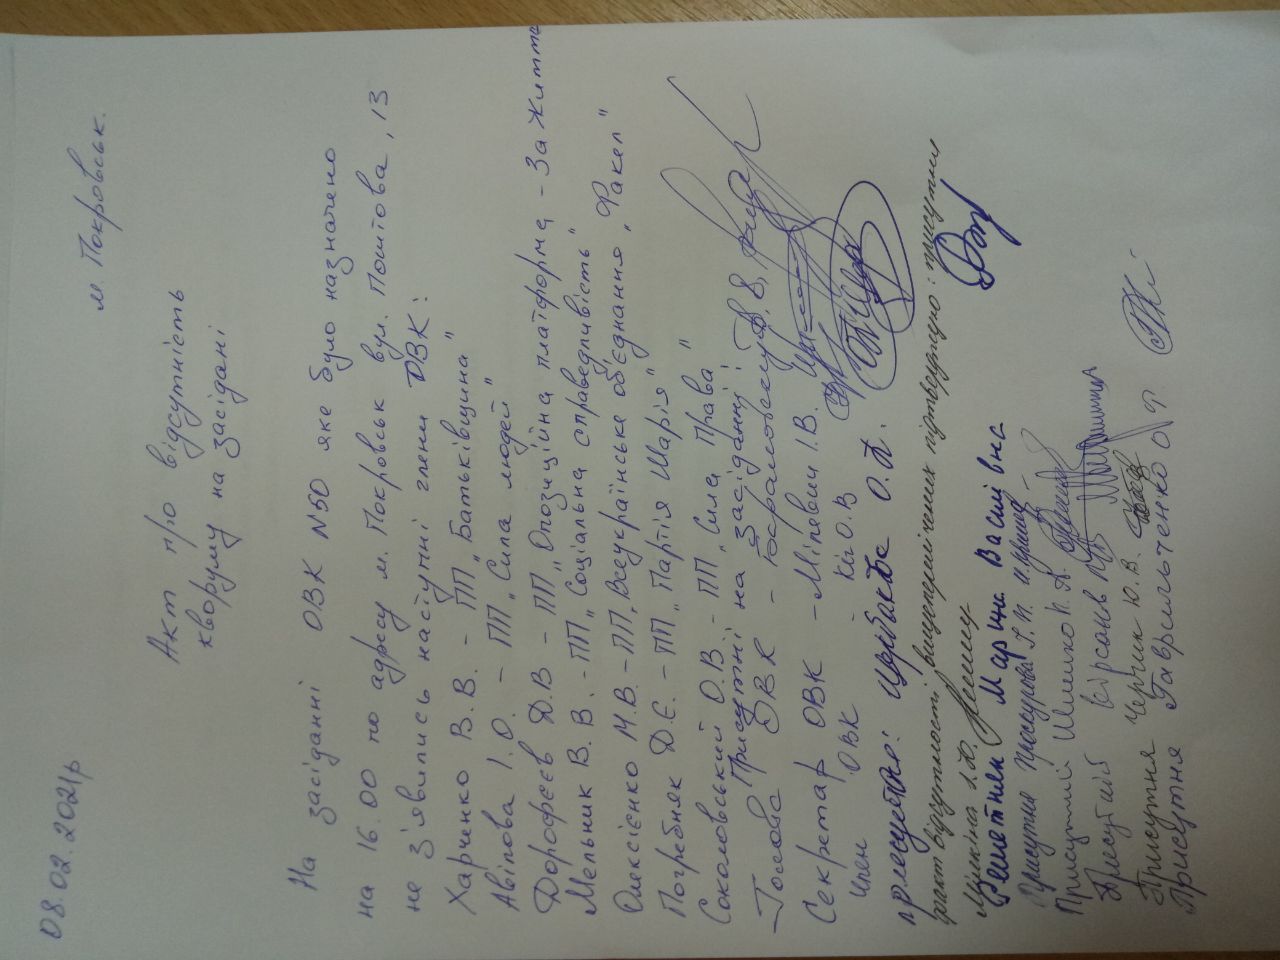 08.02.2021р
м. Покровськ.
Акт про відсутність
кворуму на засідані
На засіданні ОВК №50 яке було назначено
на 16.00 по адресу м. Покровськ вул. Поштова, 13
не з'явились наступні члени ОВК:
Харченко В.В. - ПП „Батьківщина"
Авілова І.О. - ПП „Сила людей"
Дорофєєв Д.В - ПП „Опозиційна платформа - За Життя
Мельник В.В. - ПП „Соціальна справедливість"
Олексієнко М.В. - ПП „Всеукраїнське об'єднання „Факел"
Погребняк Д.Є. - ПП „Партія Шарія"
Соколовський О.В. - ПП „Сила Права"
Присутні на засіданні:
Голова ОВК -
Секретар ОВК - Мілевич І.В.
Член ОВК - Кіт О.В
Щербакова О.П.
факт відсутності вищеперелічених підтверджую: присутни
Мішкіна
Решетняк Марина Василівна
Присутня Проскурова Г.П.
Присутній Шишко К.А.
Кірсанов
Присутня Черник Ю.В.
Присутня Гаврильченко О.Ф.